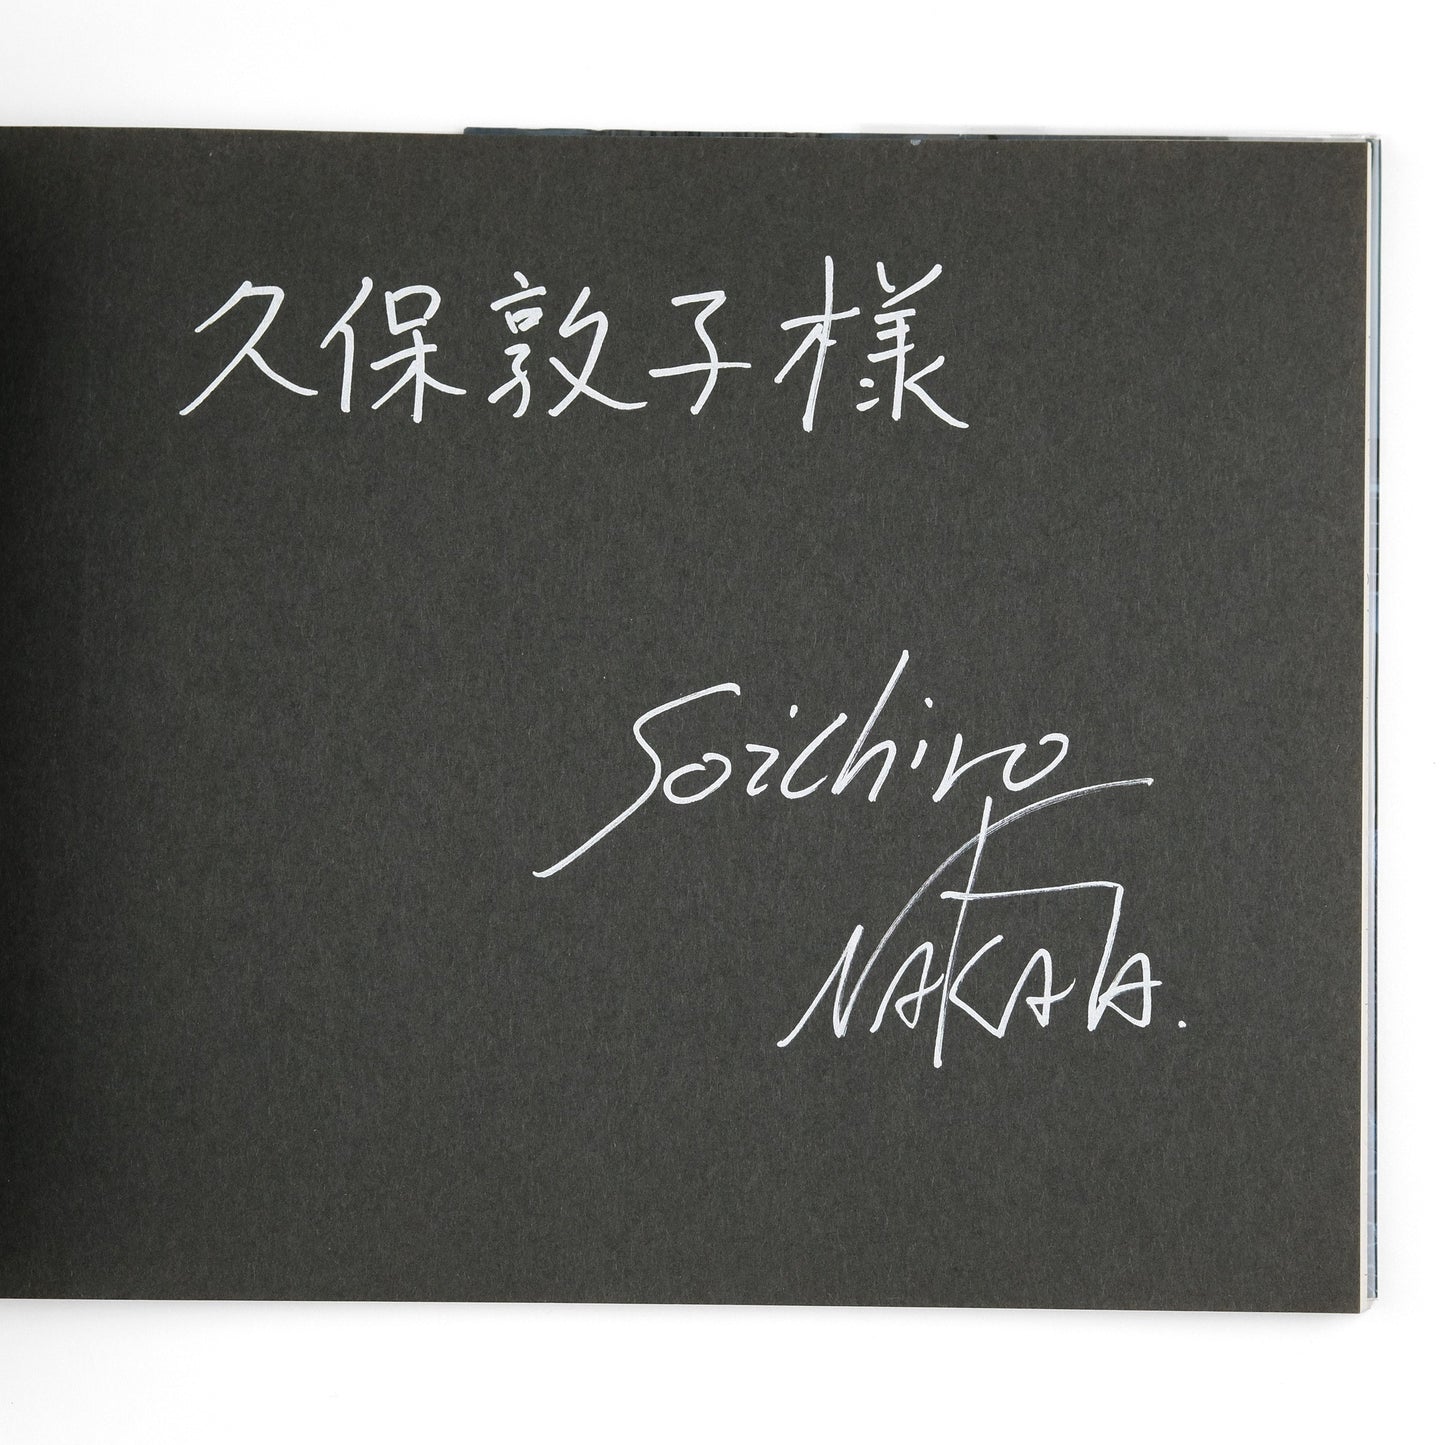 久保敦子様
Soichiro
NAKATA.